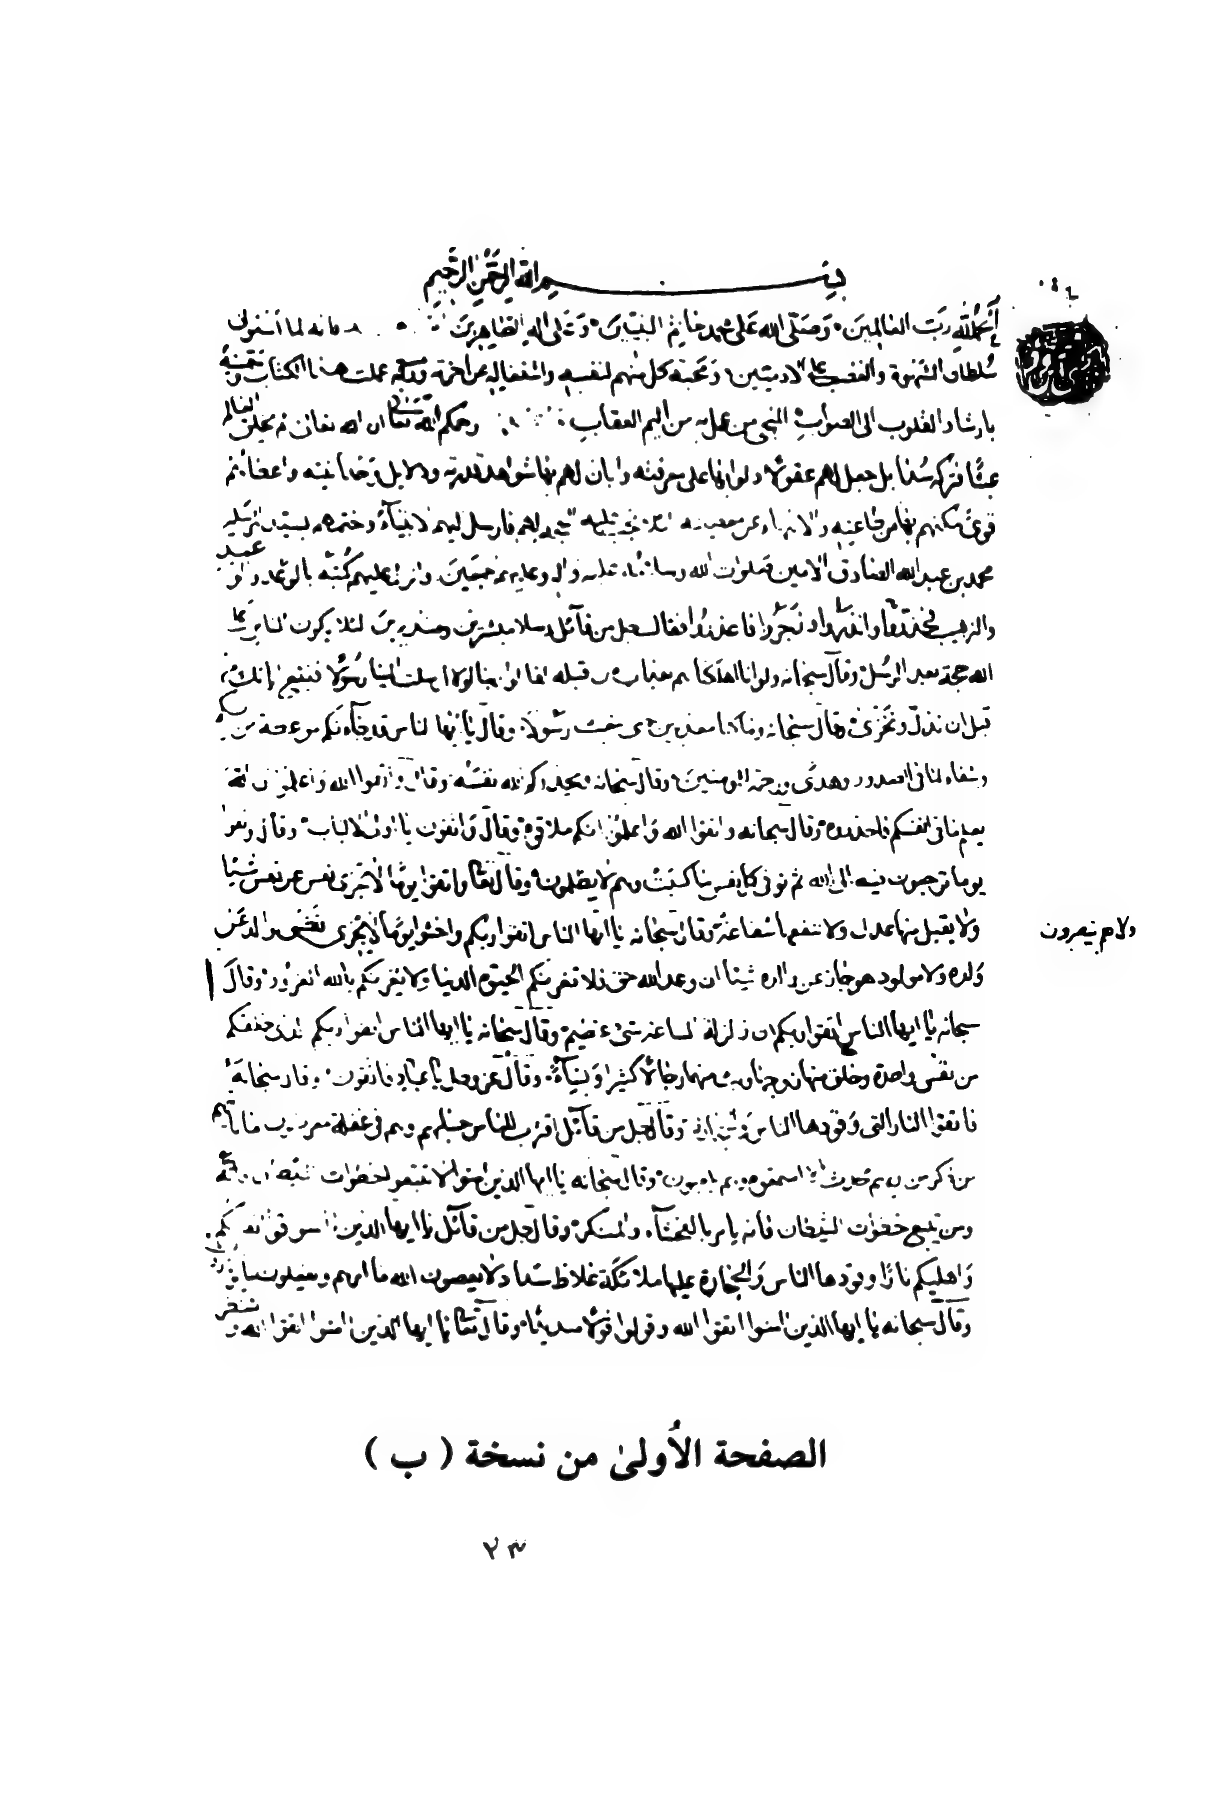 بسم الله الرحمن الرحيم
الحمد لله رب العالمين وصلى الله على محمد خاتم النبيين وعلى اله الطاهرين فانه لما استولى
سلطان الشهوة والغضب على الادميين ومحبة كل منهم لنفسه واشتغاله عن اخرته عملت هذا الكتاب وسميته
بارشاد القلوب الى الصواب المنجي من عمل به من اليم العقاب رحمكم الله تعالى ان الله تعالى لم يخلق العالم
عبثا فتركه سدا بل جعل لهم عقولا دلوا بها على معرفته وابان لهم بها شواهد قدرته ودلايل وحدانيته واعطاهم
قوى مكنهم بها من طاعته والانتهاء عن معصيته فارسل اليهم الانبياء وختمهم بسيد المرسلين
محمد بن عبد الله الصادق الامين صلوات الله وسلامه عليه واله وعليهم اجمعين وانزل عليهم كتبه بالوعد والوعيد
والترهيب فقال جل من قائل رسلا مبشرين ومنذرين لئلا يكون للناس على
الله حجة بعد الرسل وقال سبحانه ولو انا اهلكناهم بعذاب من قبله لقالوا ربنا لولا ارسلت الينا رسولا فنتبع اياتك من
قبل ان نذل ونخزى وقال سبحانه وما كنا معذبين حتى نبعث رسولا وقال يا ايها الناس قد جاءتكم موعظة من ربكم
وشفاء لما في الصدور وهدى ورحمة للمومنين وقال سبحانه ويحذركم الله نفسه وقال واتقوا الله واعلموا ان الله
يعلم ما في انفسكم فاحذروه وقال سبحانه واتقوا الله واعلموا انكم ملاقوه وقال واتقون يا اولى الالباب وقال واتقوا
يوما ترجعون فيه الى الله ثم توفى كل نفس ما كسبت وهم لا يظلمون وقال تعالى واتقوا يوما لا تجزى نفس عن نفس شيئا
ولا يقبل منها عدل ولا تنفعها شفاعة وقال سبحانه يا ايها الناس اتقوا ربكم واخشوا يوما لا يجزى والد عن
ولاهم ينصرون
ولده ولا مولود هو جاز عن والده شيئا ان وعد الله حق فلا تغرنكم الحيوة الدنيا ولا يغرنكم بالله الغرور وقال
سبحانه يا ايها الناس اتقوا ربكم ان زلزلة الساعة شيء عظيم وقال سبحانه يا ايها الناس اتقوا ربكم الذى خلقكم
من نفس واحدة وخلق منها زوجها وبث منهما رجالا كثيرا ونساء وقال عز وجل يا عباد فاتقون وقال سبحانه
فاتقوا النار التى وقودها الناس وقال جل من قائل اقترب للناس حسابهم وهم في غفلة معرضون ما ياتيهم
من ذكر من ربهم محدث الا استمعوه وهم يلعبون وقال سبحانه يا ايها الذين امنوا لا تتبعوا خطوات الشيطان
ومن يتبع خطوات الشيطان فانه يامر بالفحشاء والمنكر وقال جل من قائل يا ايها الذين امنوا قوا انفسكم
واهليكم نارا وقودها الناس والحجارة عليها ملائكة غلاظ شداد لا يعصون الله ما امرهم ويفعلون ما يؤمرون
وقال سبحانه يا ايها الذين امنوا اتقوا الله وقولوا قولا سديدا وقال تعالى يا ايها الذين امنوا اتقوا الله ولتنظر
الصفحة الأولى من نسخة ( ب )
٢٣